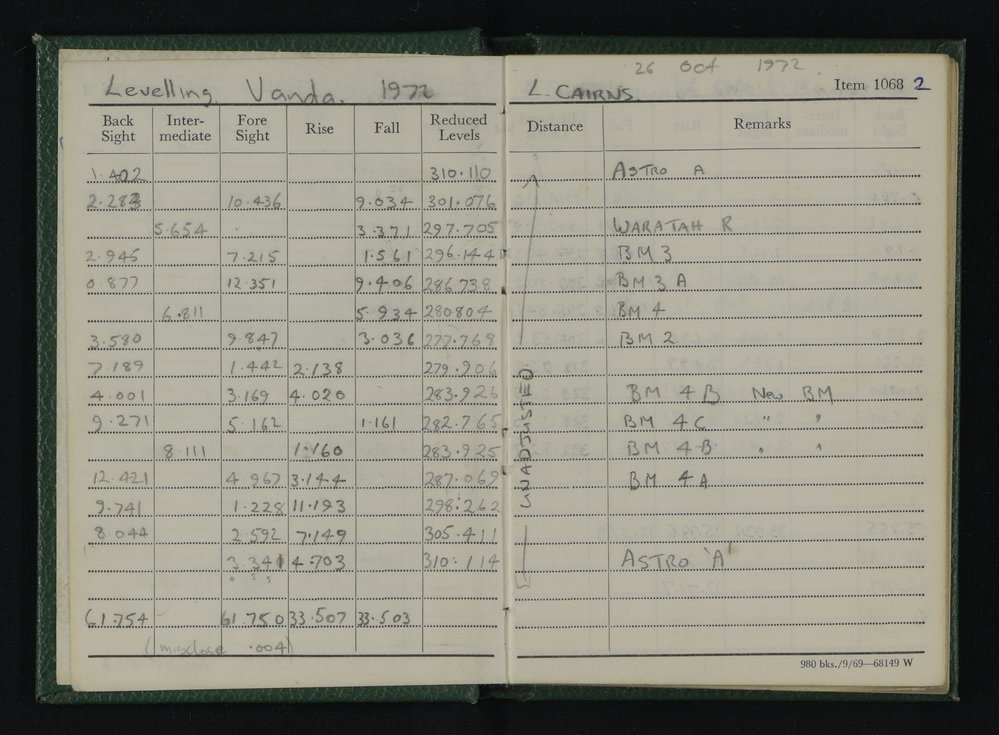 Levelling Vanda. 1972
Back Sight Inter-mediate Fore Sight Rise Fall Reduced Levels
1.402 310.110
2.283 10.436 9.034 301.076
5.654 3.371 297.705
2.945 7.215 1.561 296.144
0.877 12.351 9.406 286.738
6.811 5.934 280804
3.580 9.847 3.036 277.768
7.189 1.442 2.138 279.906
4.001 3.169 4.020 283.926
9.271 5.162 1.161 282.765
8.111 1.160 283.925
12.421 4.967 3.144 287.069
9.741 1.228 11.193 298.262
8.044 2.592 7.149 305.411
3.341 4.703 310.114
61.754 61.750 33.507 33.503
(misclose .004)
26 Oct 1972
L. CAIRNS. Item 1068 2
Distance Remarks
UNADJUSTED
ASTRO A
WARATAH R
BM 3
BM 3 A
BM 4
BM 2
BM 4B New BM
BM 4C " "
BM 4B " "
BM 4A
ASTRO 'A'
980 bks./9/69—68149 W